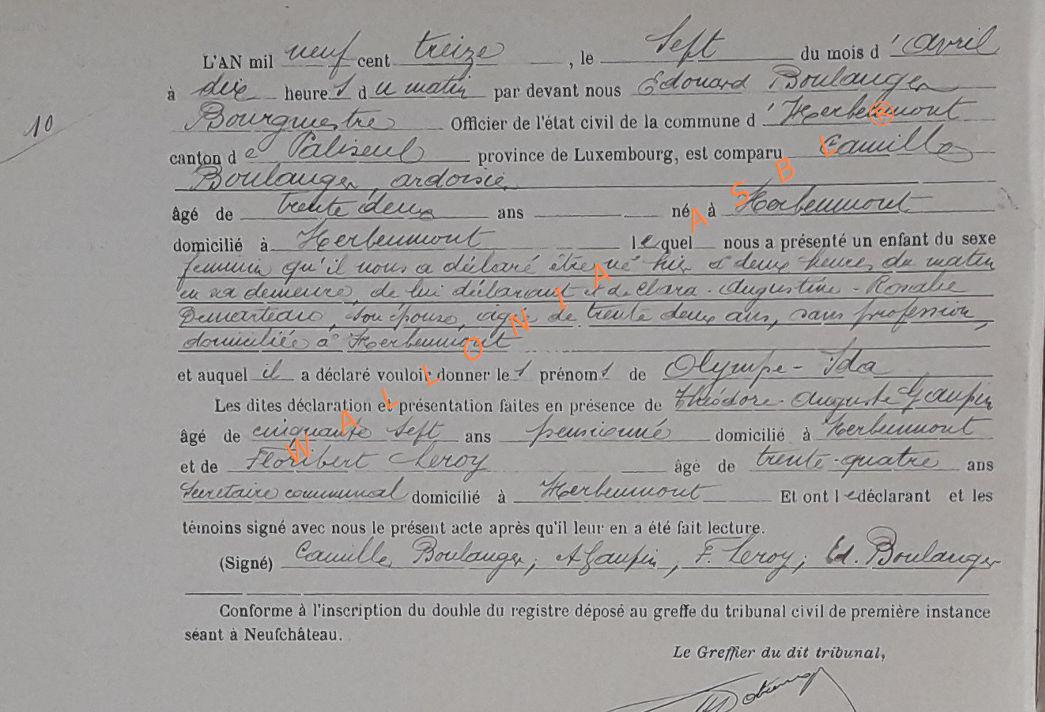 L'AN mil neuf cent treize, le sept du mois d'avril
à dix heures du matin par devant nous Edouard Boulanger
Bourgmestre Officier de l'état civil de la commune d'Herbeumont
10
canton de Paliseul province de Luxembourg, est comparu Camille
Boulanger, ardoisier
âgé de trente deux ans né à Herbeumont
domicilié à Herbeumont lequel nous a présenté un enfant du sexe
feminin qu'il nous a déclaré être né hier à deux heures du matin
en sa demeure, de lui déclarant et de Clara-Augustine-Rosalie
Demarteau, son épouse, agée de trente deux ans, sans profession,
domiciliée à Herbeumont
et auquel il a déclaré vouloir donner les prénoms de Olympe-Ida
Les dites déclaration et présentation faites en présence de Théodore-Auguste Gaupin
âgé de cinquante sept ans pensionné domicilié à Herbeumont
et de Floribert Leroy âgé de trente-quatre ans
Secretaire communal domicilié à Herbeumont Et ont le déclarant et les
témoins signé avec nous le présent acte après qu'il leur en a été fait lecture.
(Signé) Camille Boulanger; A Gaupin, F. Leroy; Ed. Boulanger
Conforme à l'inscription du double du registre déposé au greffe du tribunal civil de première instance
séant à Neufchâteau.
Le Greffier du dit tribunal,
WALLONIA ASBL ®